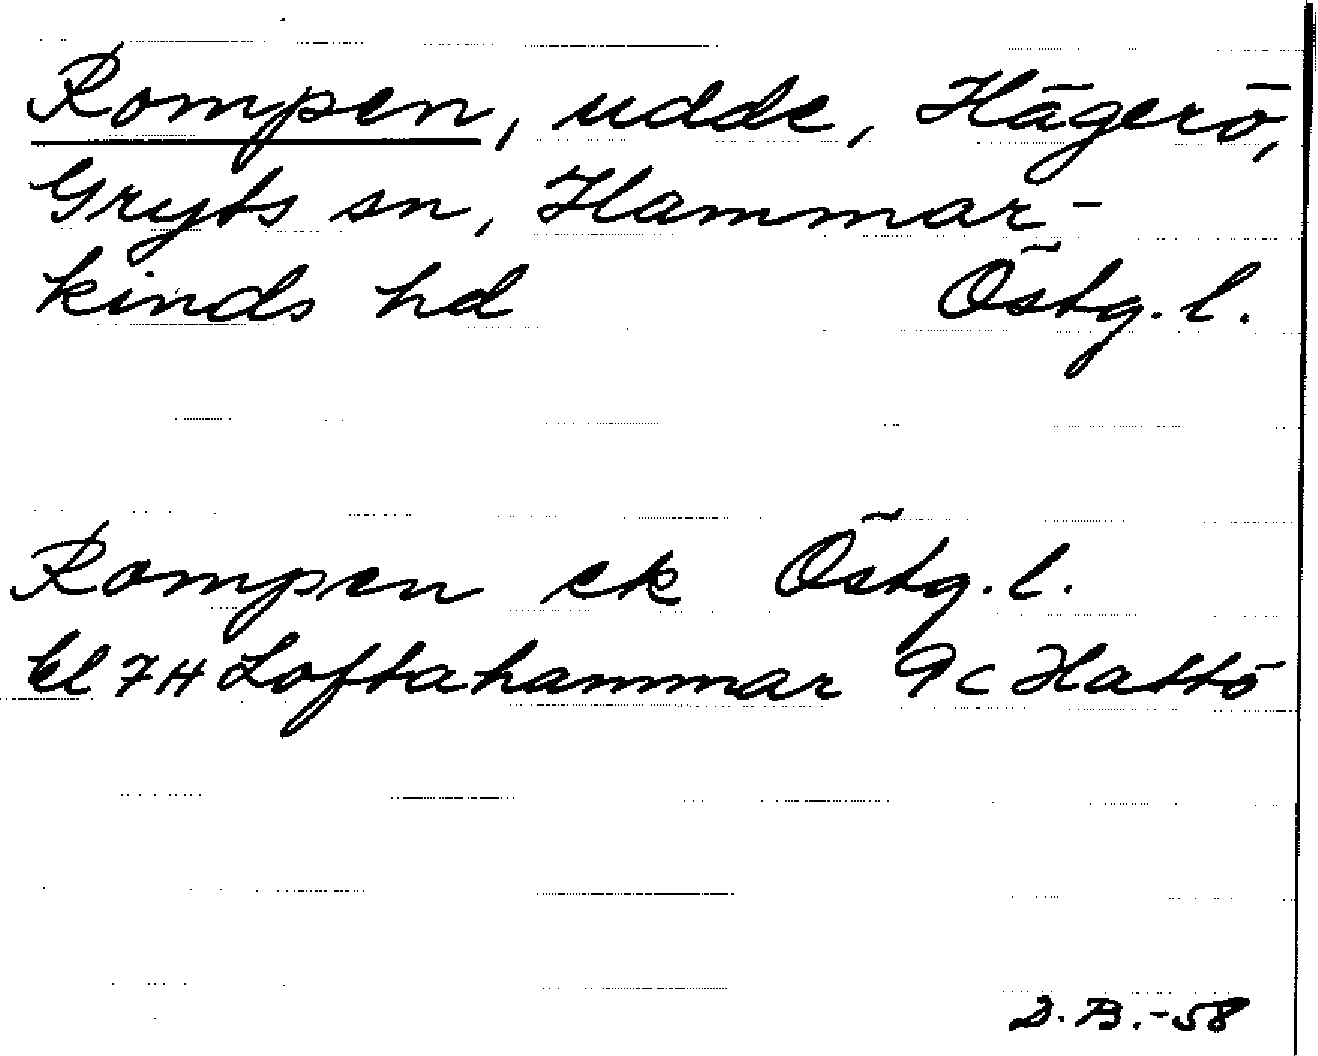 Rompen, udde, Hägerö,
Gryts sn, Hammar-
kinds hd Östg. l.
Rompen ek Östg. l.
bl 7H Loftahammar 9c Hattö
D. B. -58